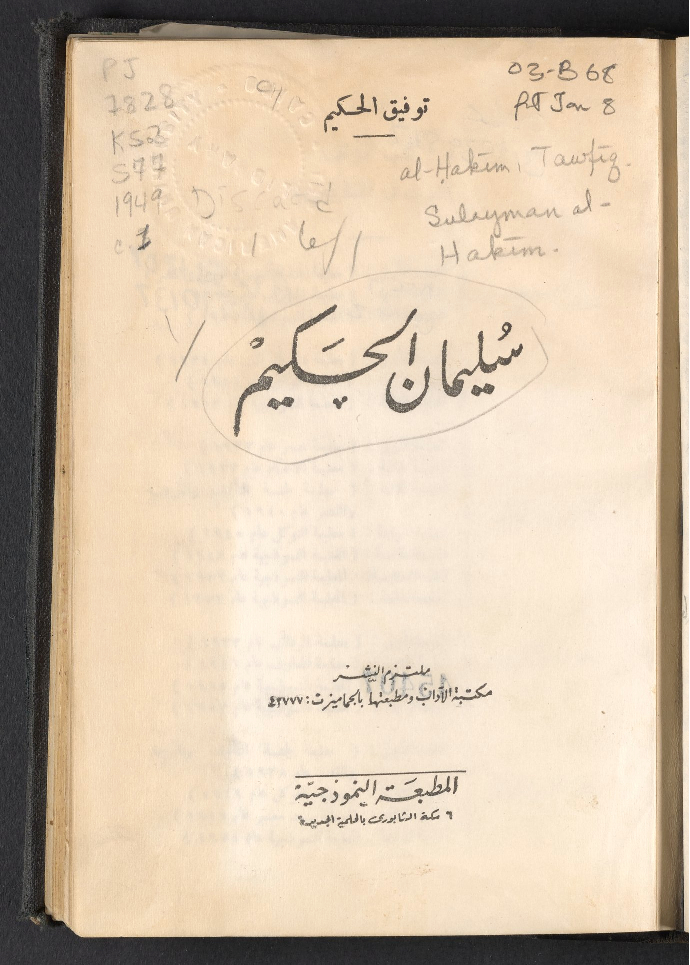 PJ
7828
K52
S77
1949
c.1
Discard
03-B68
Jan 8
توفيق الحكيم
al-Ḥakīm, Tawfīq.
Sulaymān al-
Ḥakīm.
سُليمان الحَكيمْ
ملتزم النشر
مكتبة الآداب ومطبعتها بالجماميزت: ٤٢٧٧٧
المطبعَة النموذجيّة
٦ سكة الشابورى بالحلمية الجديدة